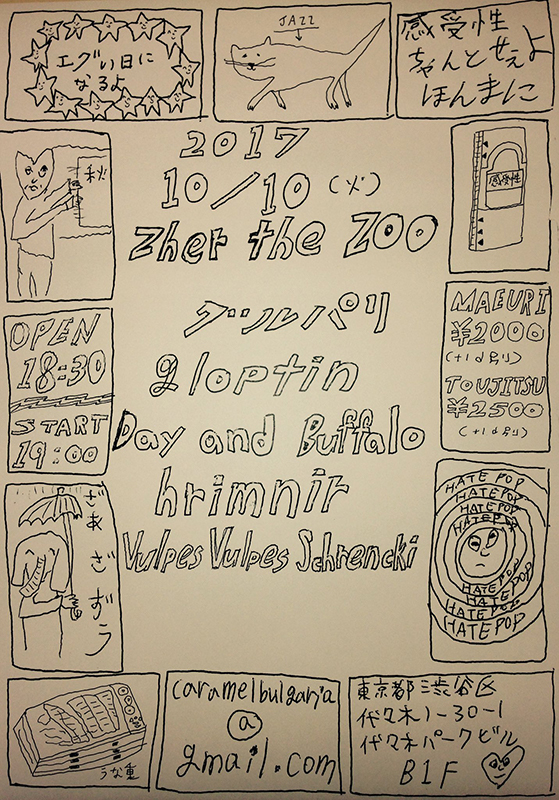 エグい日に
なるよ
JAZZ
感受性
ちゃんとせぇよ
ほんまに
2017
10/10(火)
Zher the ZOO
秋
感受性
グルパリ
gloptin
Day and Buffalo
hrimnir
Vulpes Vulpes Schrencki
OPEN
18:30
START
19:00
MAEURI
¥2000
(+1d別)
TOUJITSU
¥2500
(+1d別)
ざぁ
ざ
ずう
HATE POP
HATE POP
HATE POP
HATE POP
HATE POP
HATE POP
HATE POP
HATE POP
うな重
caramelbulgaria
@
gmail.com
東京都渋谷区
代々木1-30-1
代々木パークビル
B1F